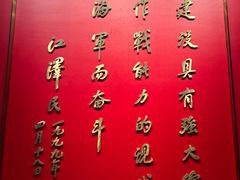 建设具有强大
作战能力的现
海军而奋斗
江泽民
一九九九年
四月十八日